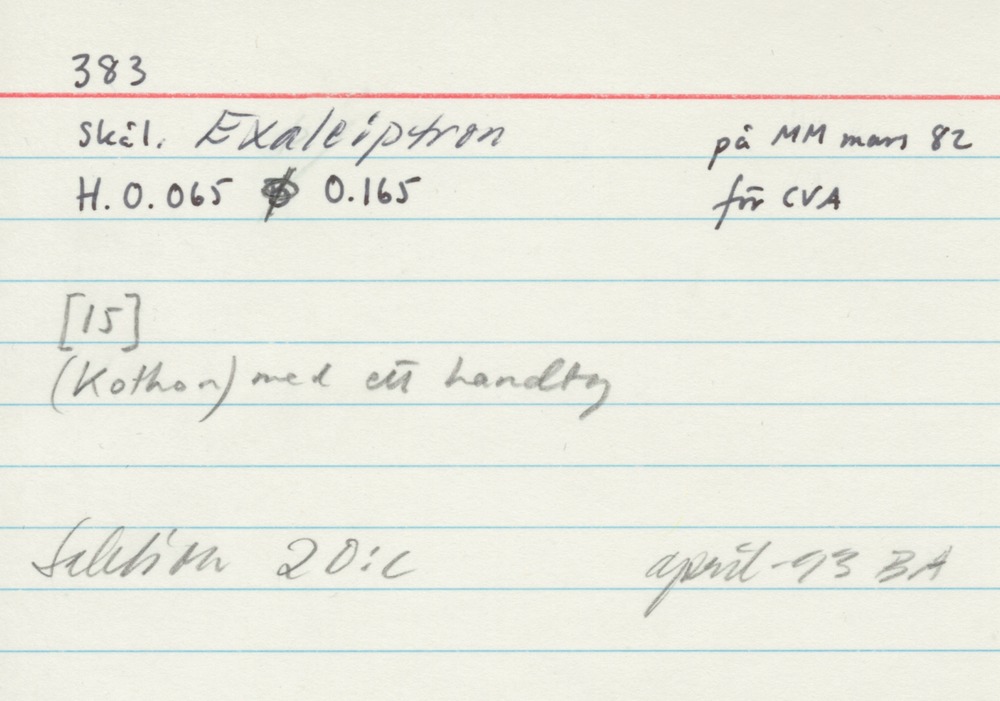 383
Skål. Exaleiptron
på MM mars 82
H. 0.065 Ø 0.165
för CVA
[15]
(Kothon) med ett handtag
Sektion 20:c
april -93 BA